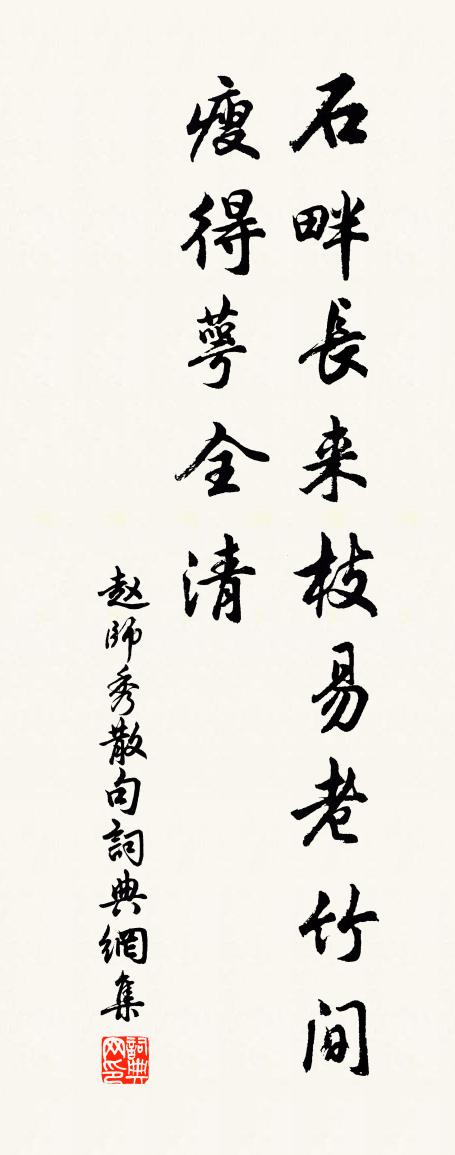 石畔長来枝易老竹间
瘦得萼全清
赵師秀散句詞典網集
詞典网印